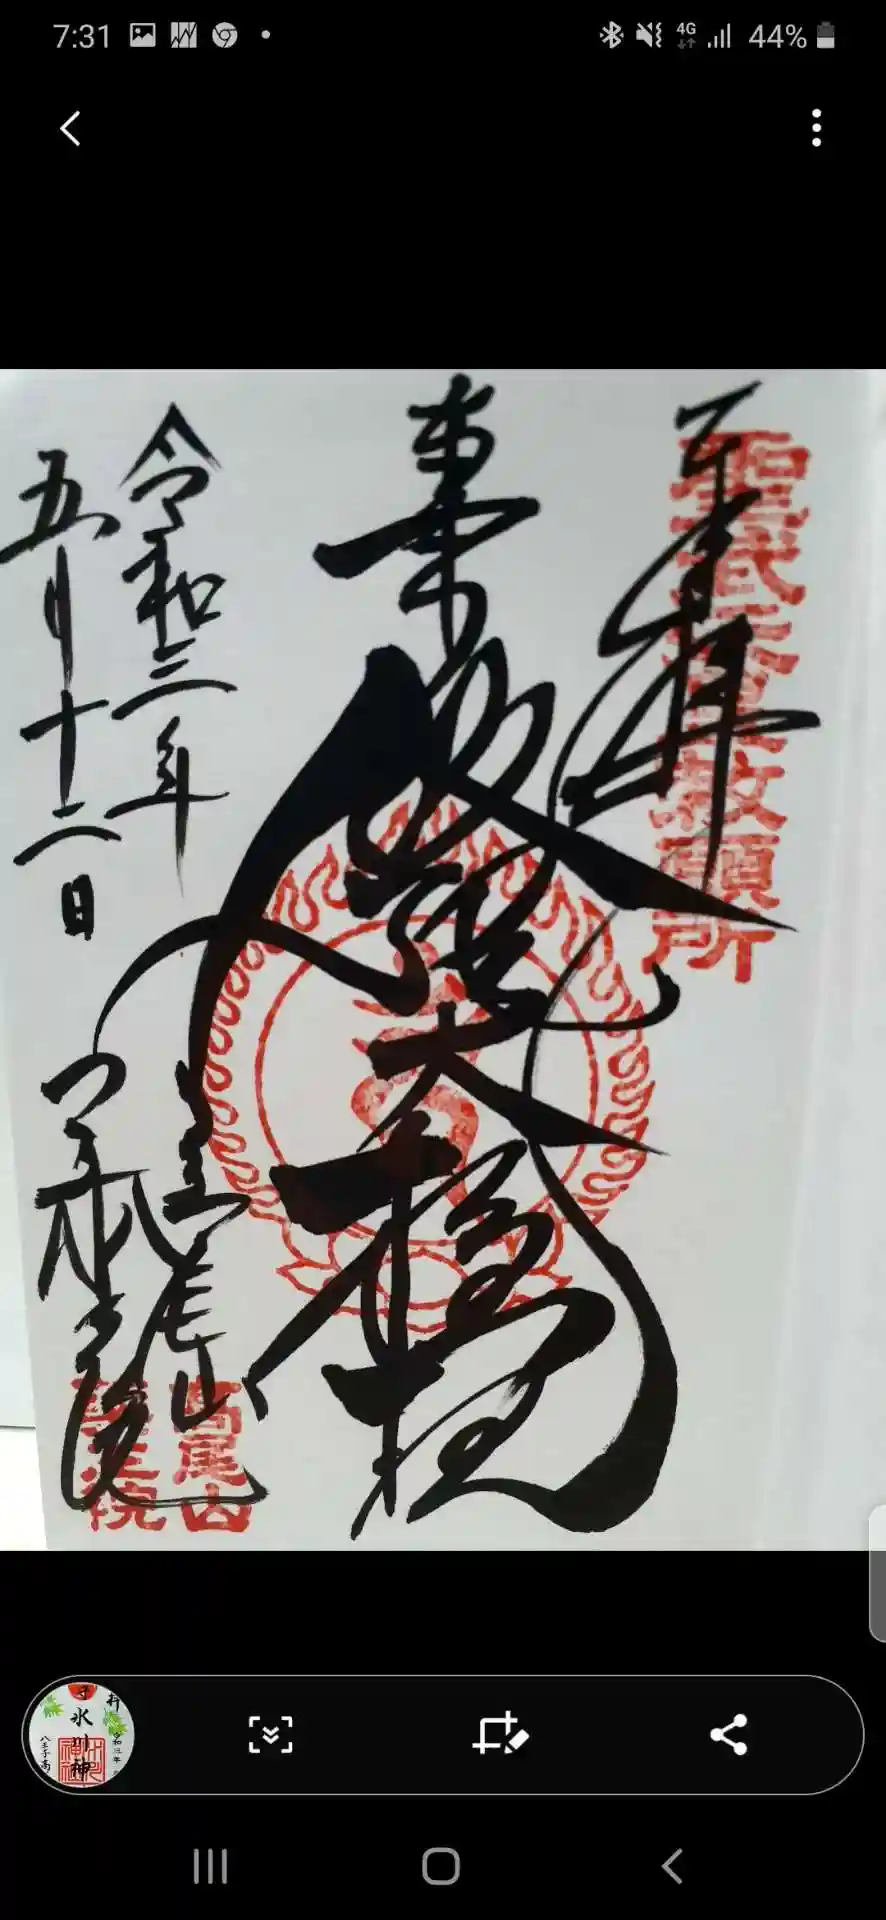 7:31
4G
44%
奉拝
聖武天皇勅願所
飯縄大権現
令和三年
五月十二日
高尾山
薬王院
高尾山
薬王院
氷川神